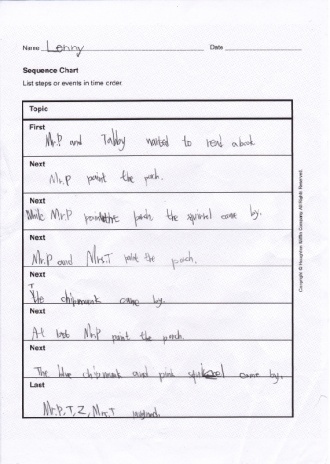 Name Lenny Date
Sequence Chart
List steps or events in time order.
Topic
First
Mr.P and Tabby wanted to read a book
Next
Mr.P paint the porch.
Next
While Mr.P paint the porch the squirrel came by.
Next
Mr.P and Mrs.T paint the porch.
Next
The chipmunk came by.
Next
At last Mr.P paint the porch.
Next
The blue chipmunk and pink squirrel came by.
Last
Mr.P, T, Z, Mrs.T
Copyright © Houghton Mifflin Company. All Rights Reserved.